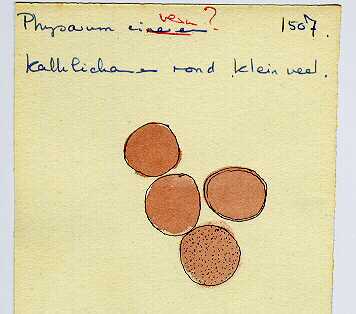 Physarum cinereum? 1507.
Kalklichamen rond klein veel.